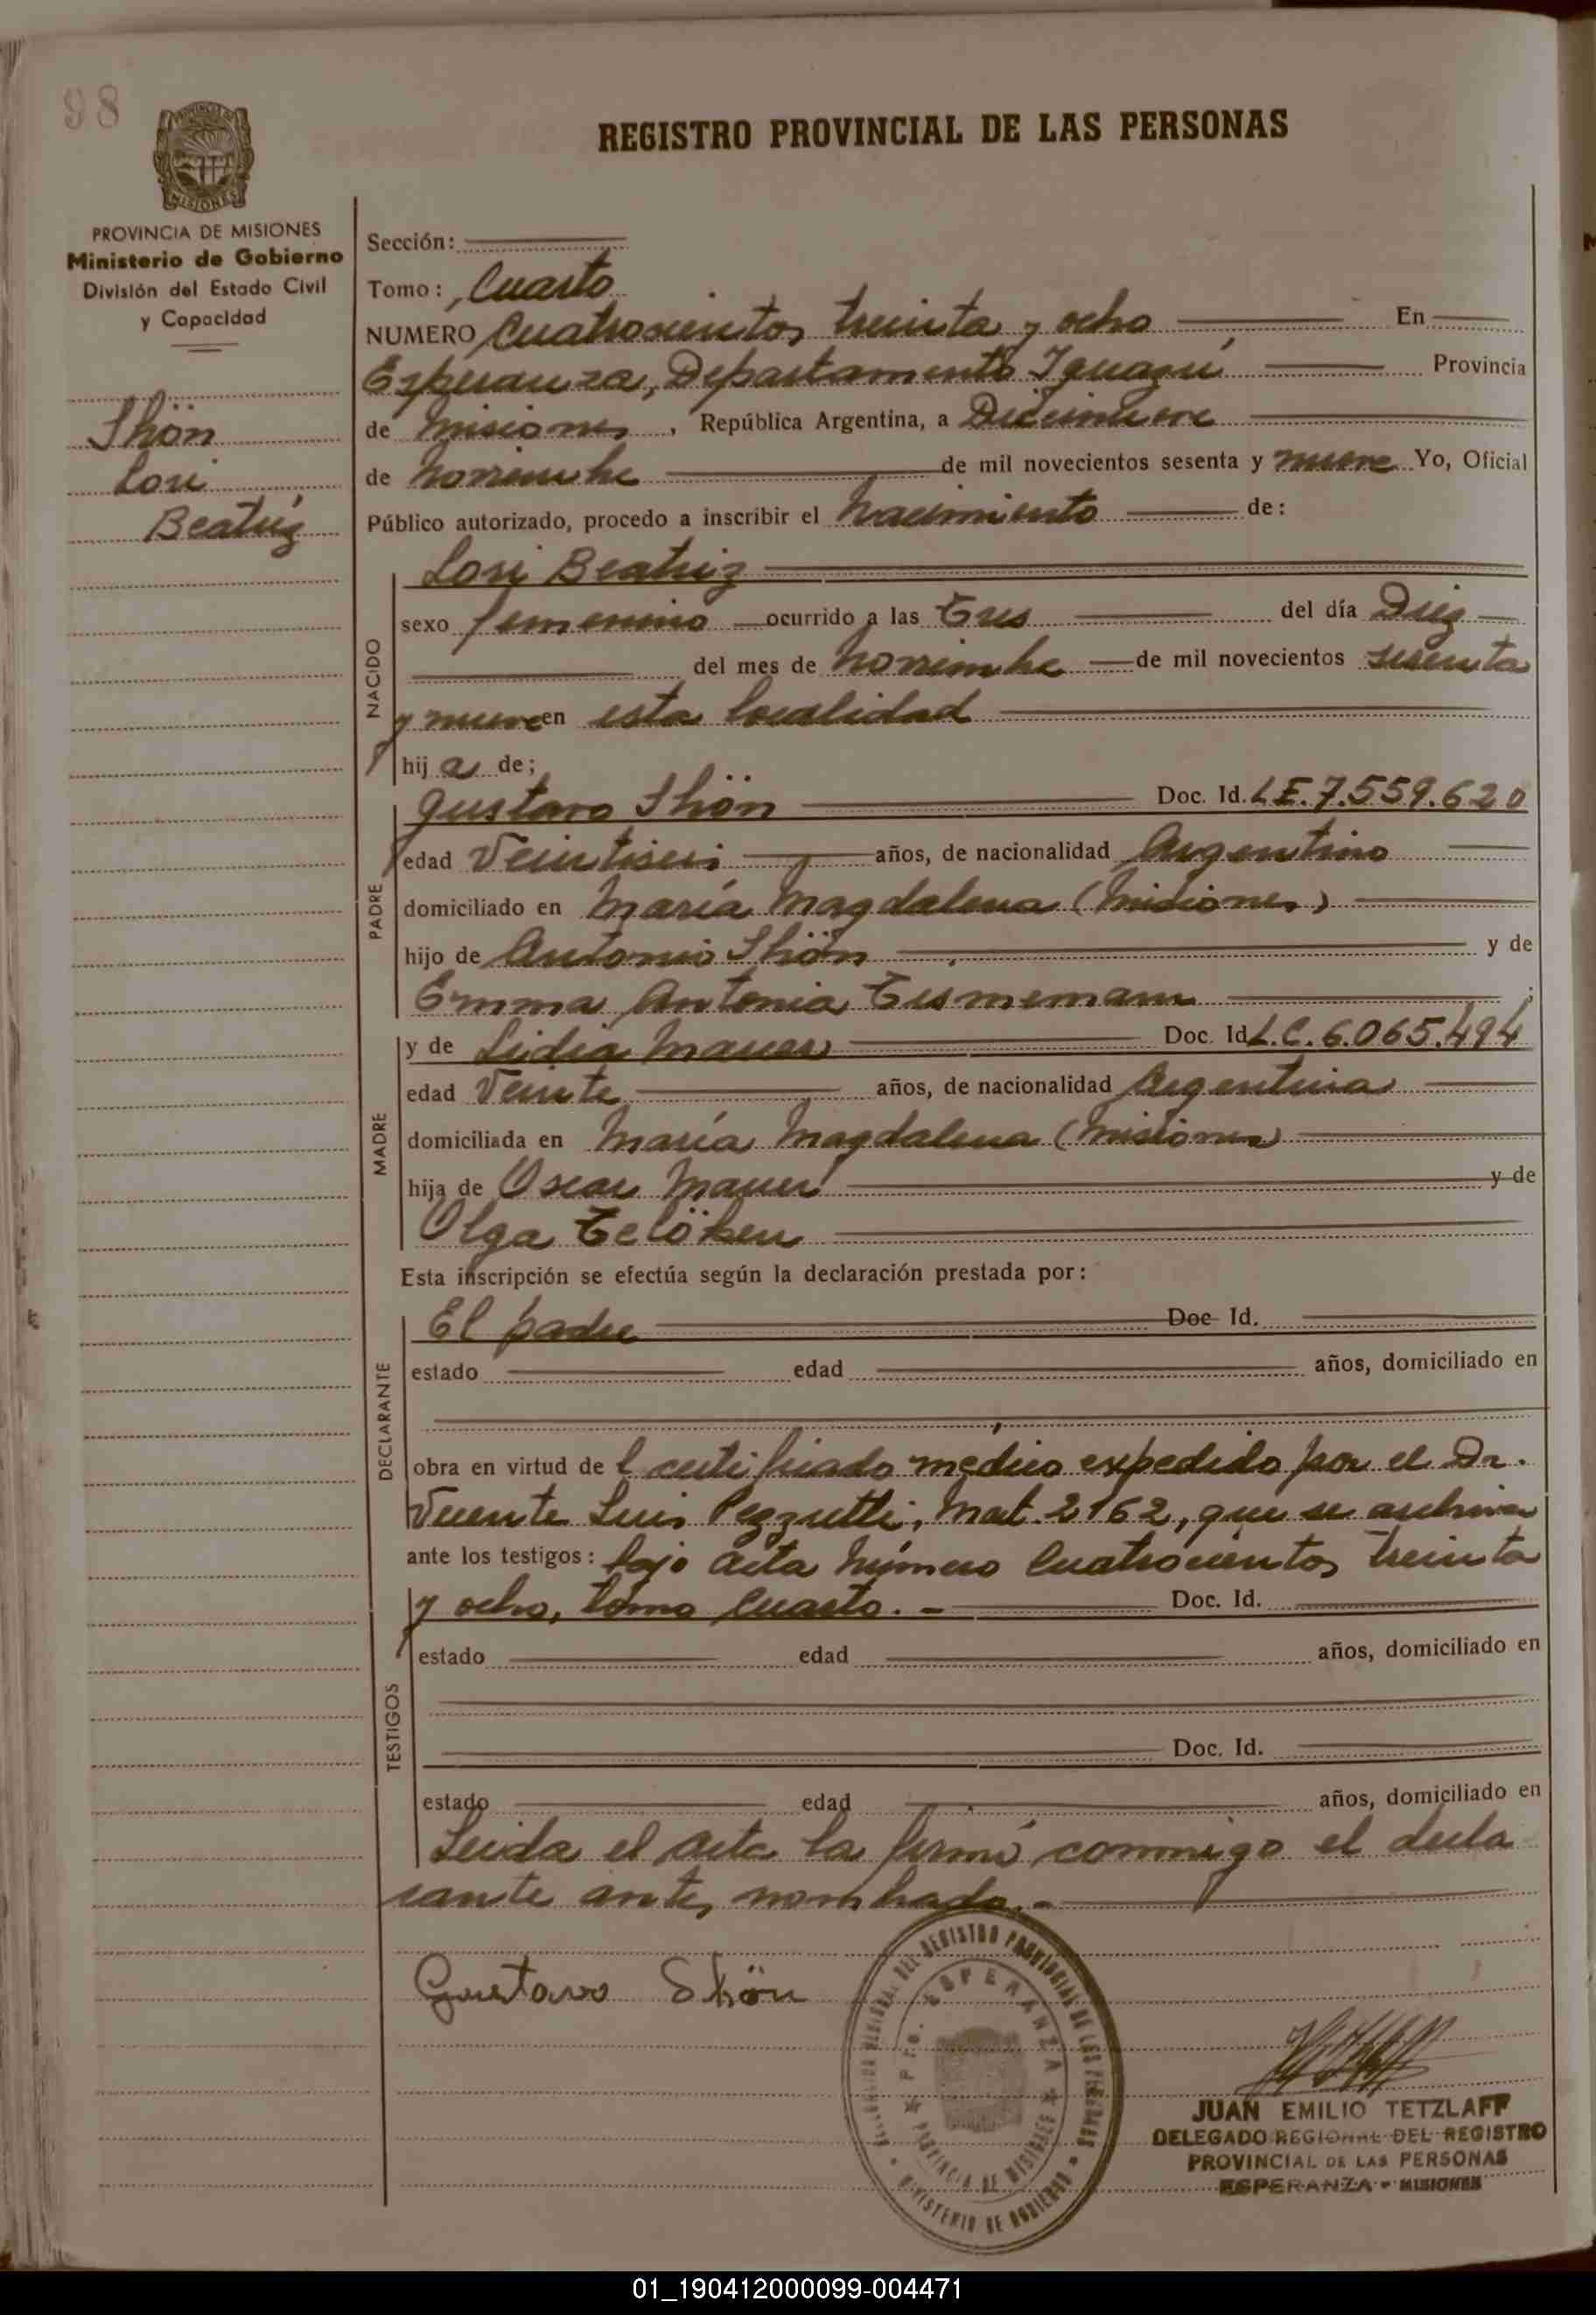 98
REGISTRO PROVINCIAL DE LAS PERSONAS
PROVINCIA DE MISIONES
Ministerio de Gobierno
División del Estado Civil
y Capacidad
Shön
Lori
Beatriz
Sección:
Tomo: Cuarto
NUMERO Cuatrocientos treinta y ocho En
Esperanza, Departamento Iguazú Provincia
de Misiones, República Argentina, a Diecinueve
de Noviembre de mil novecientos sesenta y nueve Yo, Oficial
Público autorizado, procedo a inscribir el Nacimiento de:
NACIDO
Lori Beatriz
sexo femenino ocurrido a las Tres del día Diez
del mes de Noviembre de mil novecientos sesenta
y nueve en esta localidad
hija de;
PADRE
Gustavo Shön Doc. Id. L.E. 7.559.620
edad Veintiseis años, de nacionalidad Argentino
domiciliado en María Magdalena (Misiones)
hijo de Antonio Shön y de
Emma Antonia ;
MADRE
y de Lidia Mauer Doc. Id. L.C. 6.065.494
edad Veinte años, de nacionalidad Argentina
domiciliada en María Magdalena (Misiones)
hija de Oscar Mauer y de
Olga Telöken
Esta inscripción se efectúa según la declaración prestada por:
DECLARANTE
El padre Doc Id.
estado edad años, domiciliado en
obra en virtud del certificado medico expedido por el Dr.
Vicente Luis Pezzutti, Mat. 2162, que se archiva
ante los testigos: bajo acta número Cuatrocientos treinta
y ocho, tomo Cuarto.- Doc. Id.
TESTIGOS
estado edad años, domiciliado en
Doc. Id.
estado edad años, domiciliado en
Leida el acta la firmó conmigo el decla
rante antes nombrado.-
Gustavo Shön
DELEGACION REGIONAL DEL REGISTRO PROVINCIAL DE LAS PERSONAS
Pto. ESPERANZA
PROVINCIA DE MISIONES
MINISTERIO DE GOBIERNO
JUAN EMILIO TETZLAFF
DELEGADO REGIONAL DEL REGISTRO
PROVINCIAL DE LAS PERSONAS
ESPERANZA - MISIONES
01_190412000099-004471